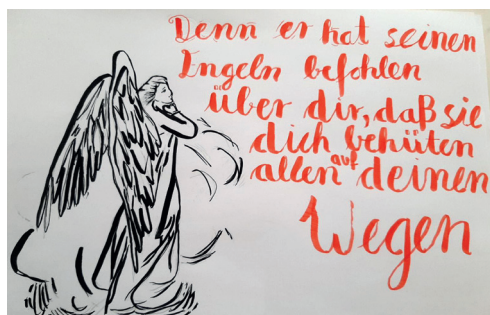 Denn er hat seinen
Engeln befohlen
über dir, daß sie
dich behüten
auf
allen deinen
Wegen